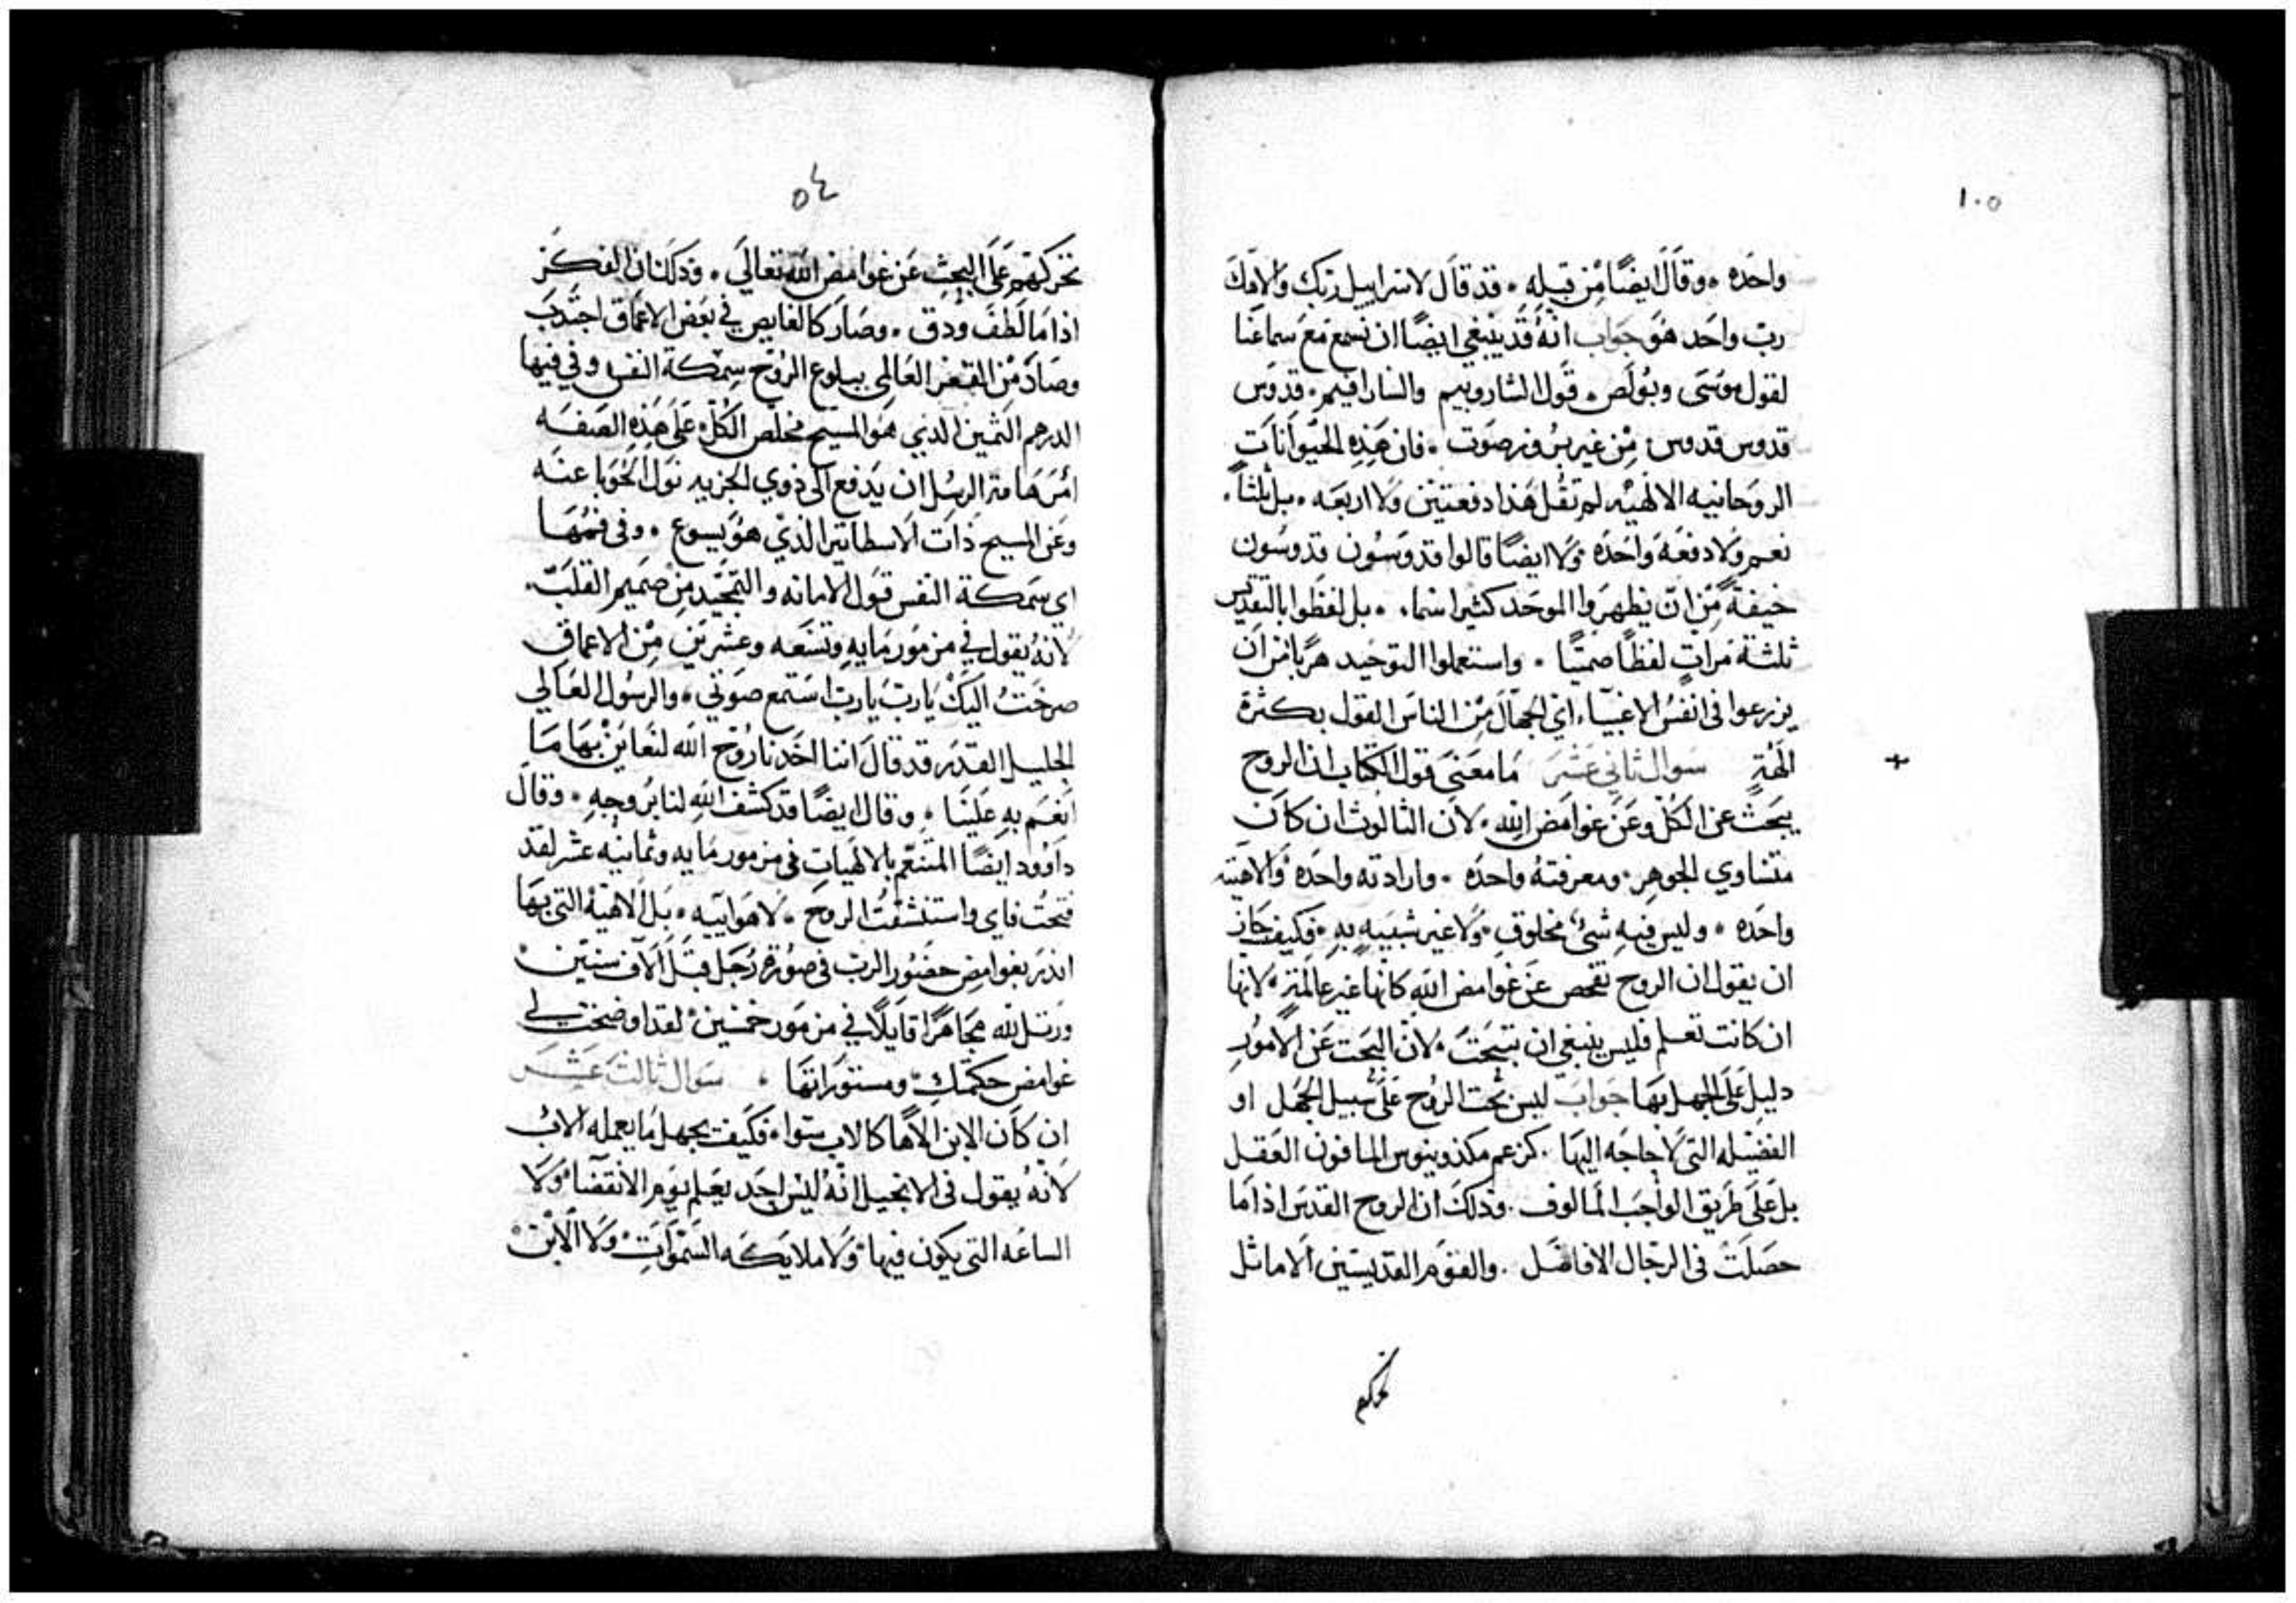 ١٠٥
واحده ٠ وقال ايضًا من قبله ٠ قد قال لاسراييل ربك والاهك
رب واحد هو جواب انه قد ينبغي ايضًا ان نسمع مع سماعنا
لقول موسى وبولص ٠ قول الشاروبيم والسارافيم ٠ قدوس
قدوس قدوس من غير بروز صوت ٠ فان هذه الحيوانات
الروحانيه الالهيه لم تقل هذا دفعتين ولا اربعه ٠ بل ثلثاً ٠
نعم ولا دفعه واحده ولا ايضًا قالوا قدوسون قدوسون
خيفةً من ان يظهروا الموحد كثيرا سما ٠ بل لفظوا بالتقديس
ثلثة مرات لفظًا صمتيًا ٠ واستعملوا التوحيد هربًا من ان
يزرعوا في انفس الاغبياء اي الجهال من الناس القول بكثرة
الهةٍ سوال ثاني عشر ما معنى قول الكتاب ان الروح
يبحث عن الكل وعن غوامض الله ٠ لان الثالوث ان كان
متساوي الجوهر ٠ ومعرفته واحده ٠ وارادته واحده والاهيته
واحده ٠ وليس فيه شي مخلوق ٠ ولا غير شبيه به ٠ فكيف جاز
ان يقول ان الروح تفحص عن غوامض الله كانها غير عالمة لانها
ان كانت تعلم فليس ينبغي ان تبحث ٠ لان البحث عن الامور
دليل على الجهل بها جواب ليس بحث الروح على سبيل الجهل او
الفضيله التي لا حاجه اليها ٠ كزعم مكذونيوس المافون العقل
بل على طريق الواجب المالوف ٠ وذلك ان الروح القدس اذا ما
حصلت في الرجال الافاضل ٠ والقوم القديسين الاماثل
تحركهم
٥٤
تحركهم على البحث عن غوامض الله تعالى ٠ وذلك ان الفكر
اذا ما لطف ودق ٠ وصار كالغايص في بعض الاعماق اجتذب
وصاد من القعر العالمي ببلوع الروح سمكة النفس وفي فيها
الدرهم الثمين الذي هو المسيح مخلص الكل على هذه الصفه
امر هامة الرسل ان يدفع الى ذوي الجزيه نول الحوبا عنه
وعن المسيح ذات الاسطاتير الذي هو يسوع ٠ وفي فمها
اي سمكة النفس قول الامانه والتمجيد من صميم القلب ٠
لانه يقول في مزمور مايه وتسعه وعشرين من الاعماق
صرخت اليك يا رب يا رب استمع صوتي ٠ والرسول العالي
الجليل القدر قد قال اننا اخدنا روح الله لنعاين بها ما
انعم به علينا ٠ وقال ايضًا قد كشف الله لنا بروحه ٠ وقال
داوود ايضًا المتنعم بالالهيات في مزمور مايه وثمانيه عشر لقد
فتحت فاي واستنشقت الروح ٠ لا هواييه ٠ بل الاهية التي بها
انذر بغوامض حضور الرب في صورة رجل قبل الاف سنين
ورتل لله مجاهرًا قايلاً في مزمور خمسين لقد اوضحت لي
غوامض حكمتك ومستوراتها ٠ سوال ثالث عشر
ان كان الابن الاهًا كالاب سوا ٠ فكيف يجهل ما يعمله الاب
لانه يقول في الانجيل انه ليس احد يعلم يوم الانقضا ولا
الساعه التي يكون فيها ولا ملايكه السموات ولا الابن